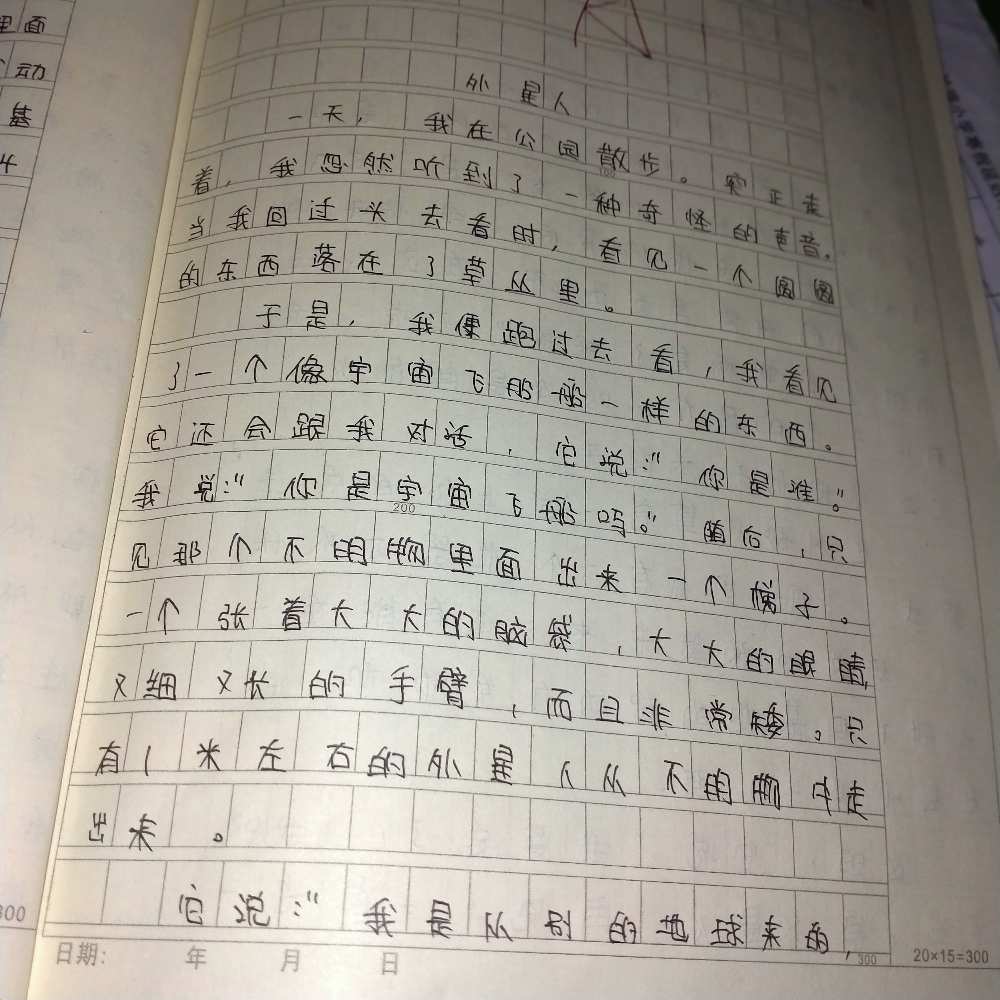 里面
动
基
外星人
一天，我在公园散步。正走
着，我忽然听到了一种奇怪的声音，
当我回过头去看时，看见一个圆圆
的东西落在了草丛里。
于是，我便跑过去看，我看见
了一个像宇宙飞船船一样的东西。
它还会跟我对话，它说：“你是谁。”
我说：“你是宇宙飞船吗。”随后，只
200
见那个不明物里面出来一个梯子。
一个张着大大的脑袋，大大的眼睛，
又细又长的手臂，而且非常矮。只
有1米左右的外星人从不明物中走
出来。
它说：“我是从别的地球来的，
300
300
日期： 年 月 日
20×15=300